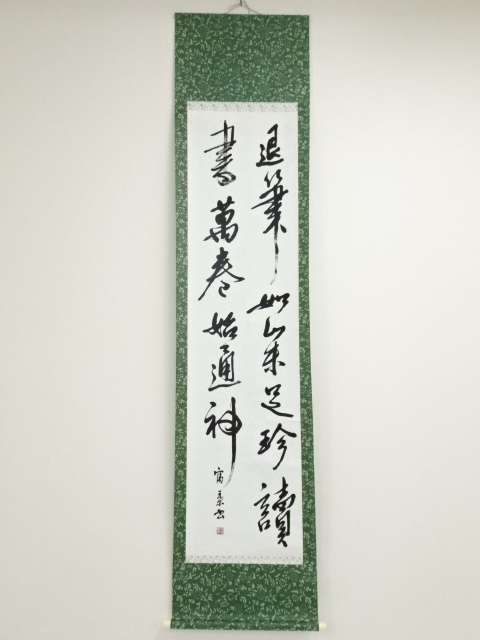 退筆如山未足珍讀
書萬卷始通神